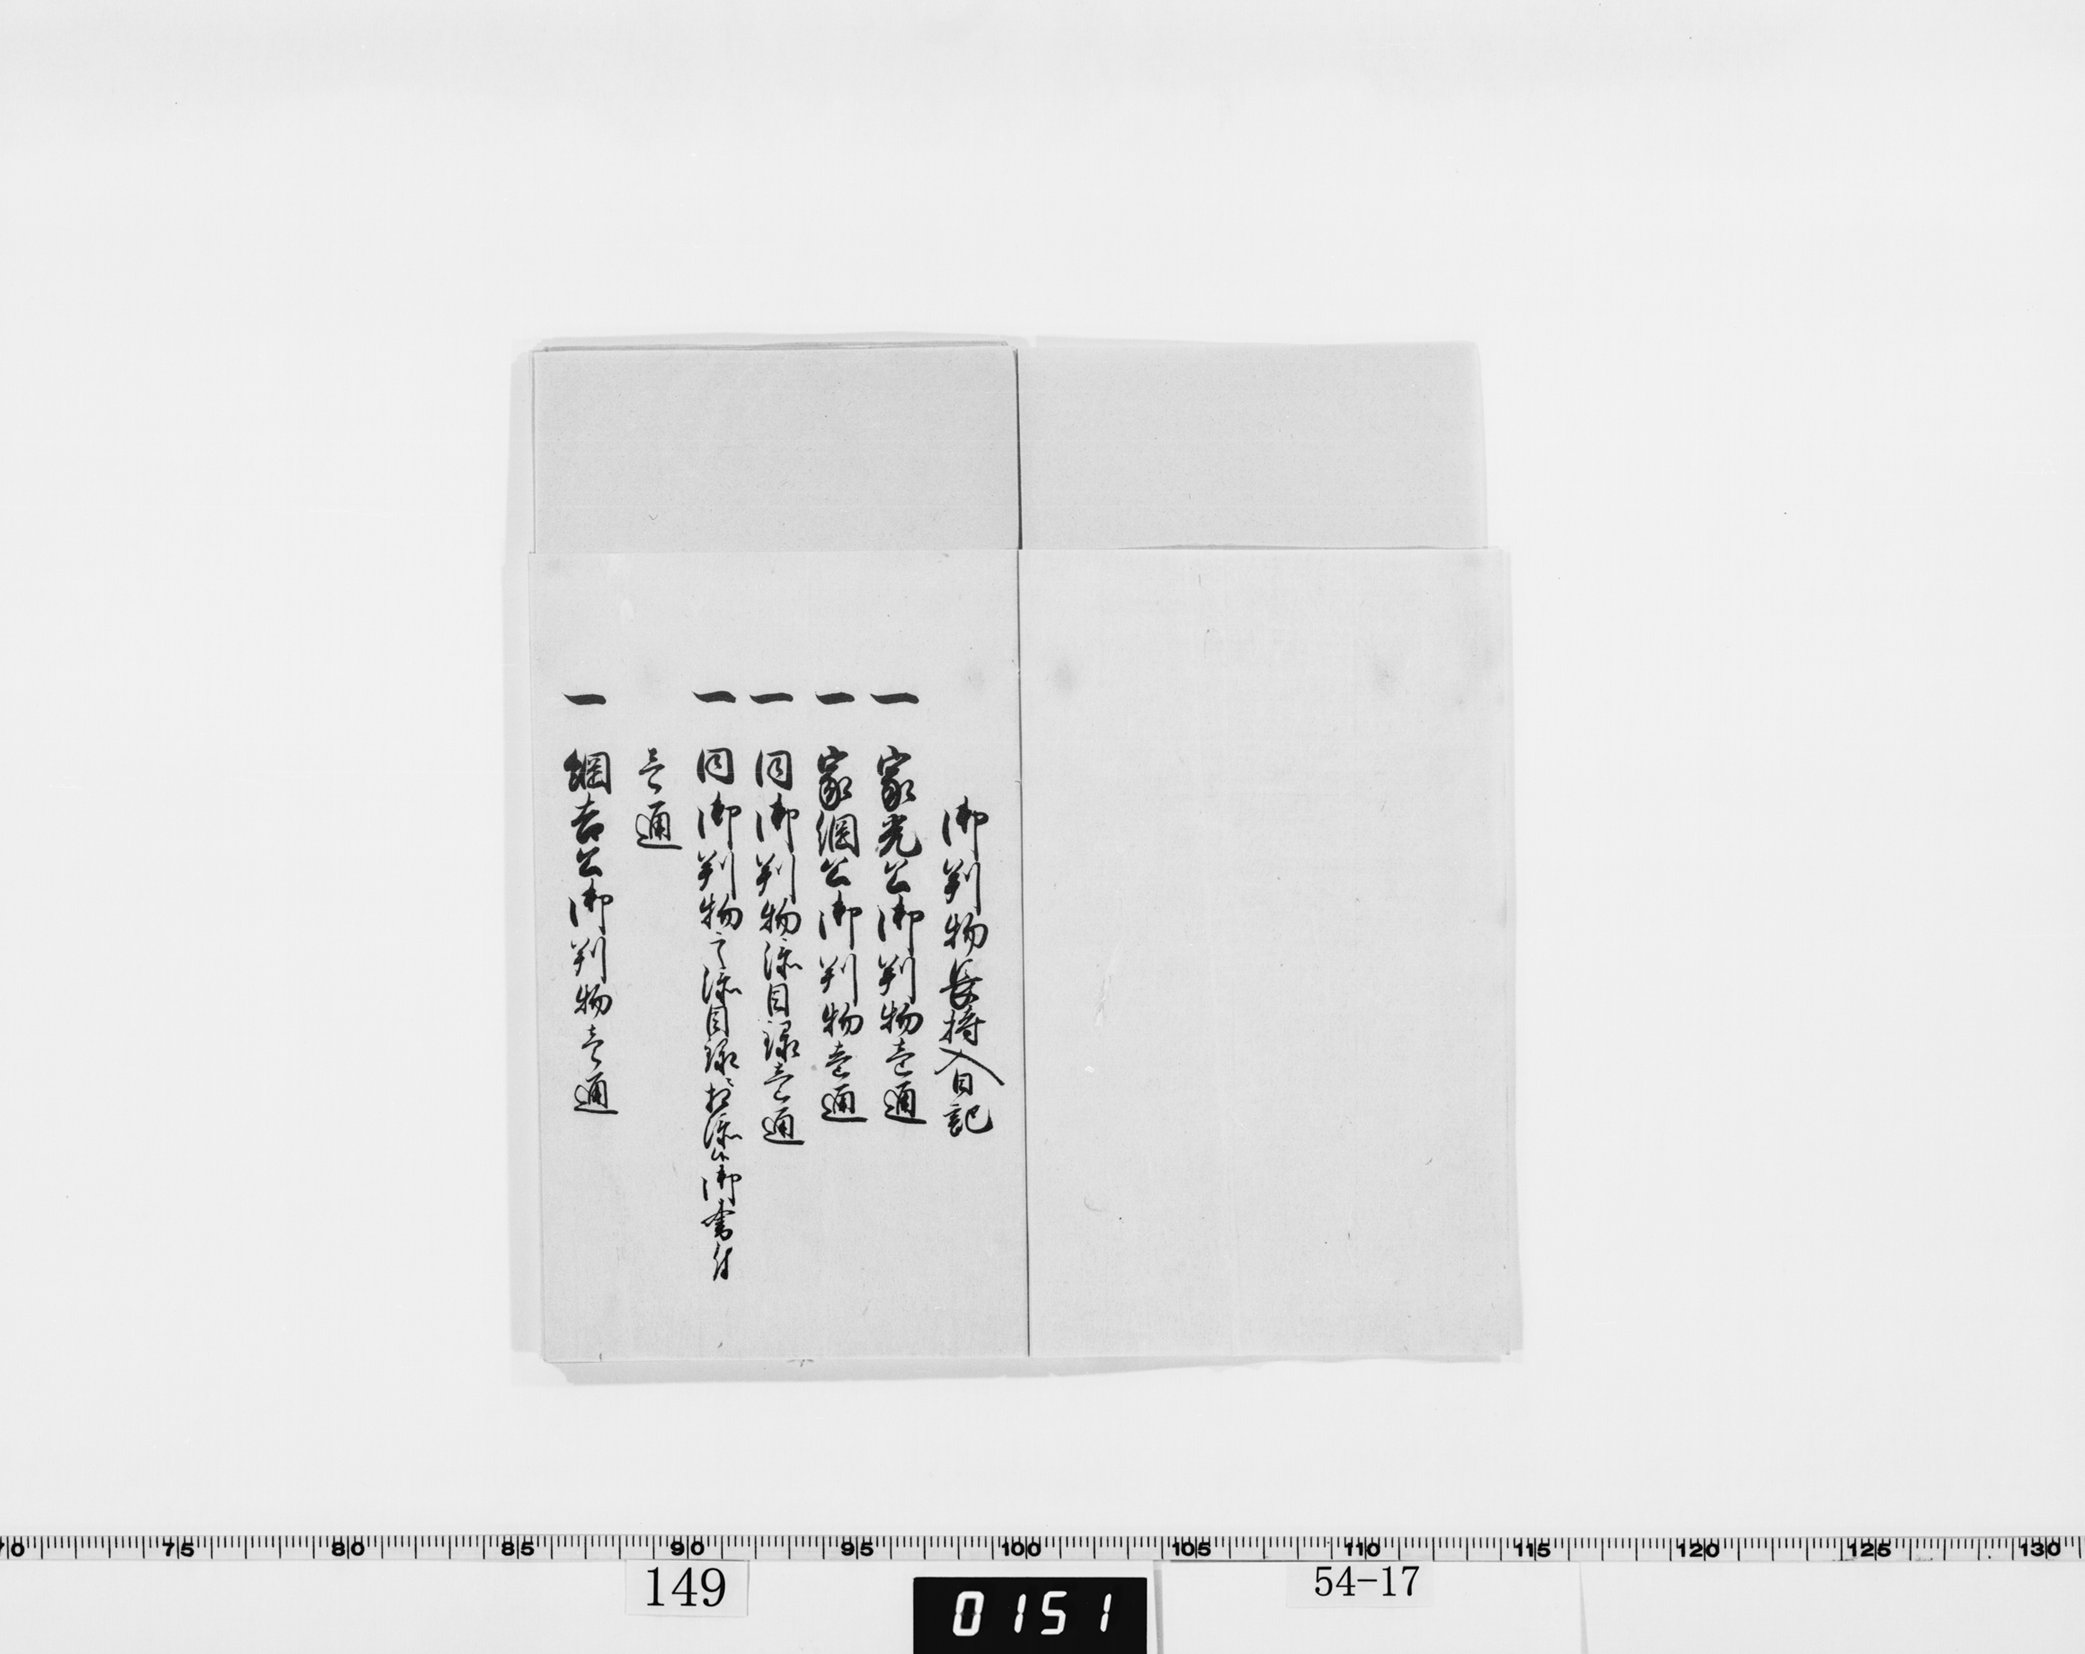 御判物長持入日記
一 家光公御判物壱通
一 家綱公御判物壱通
一 同御判物添目録壱通
一 同御判物之添目録ニ相添候御書付
壱通
一 綱吉公御判物壱通
70 75 80 85 90 95 100 105 110 115 120 125 130
149
0151
54-17